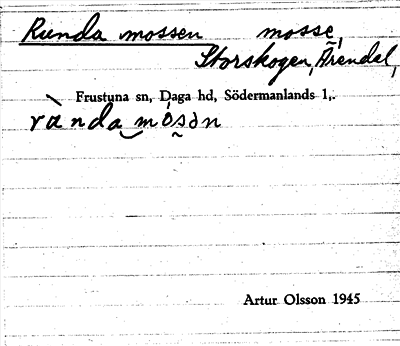 Runda mossen mosse,
Storskogen, Ärendal,
Frustuna sn, Daga hd, Södermanlands l,.
rànda mósən
Artur Olsson 1945